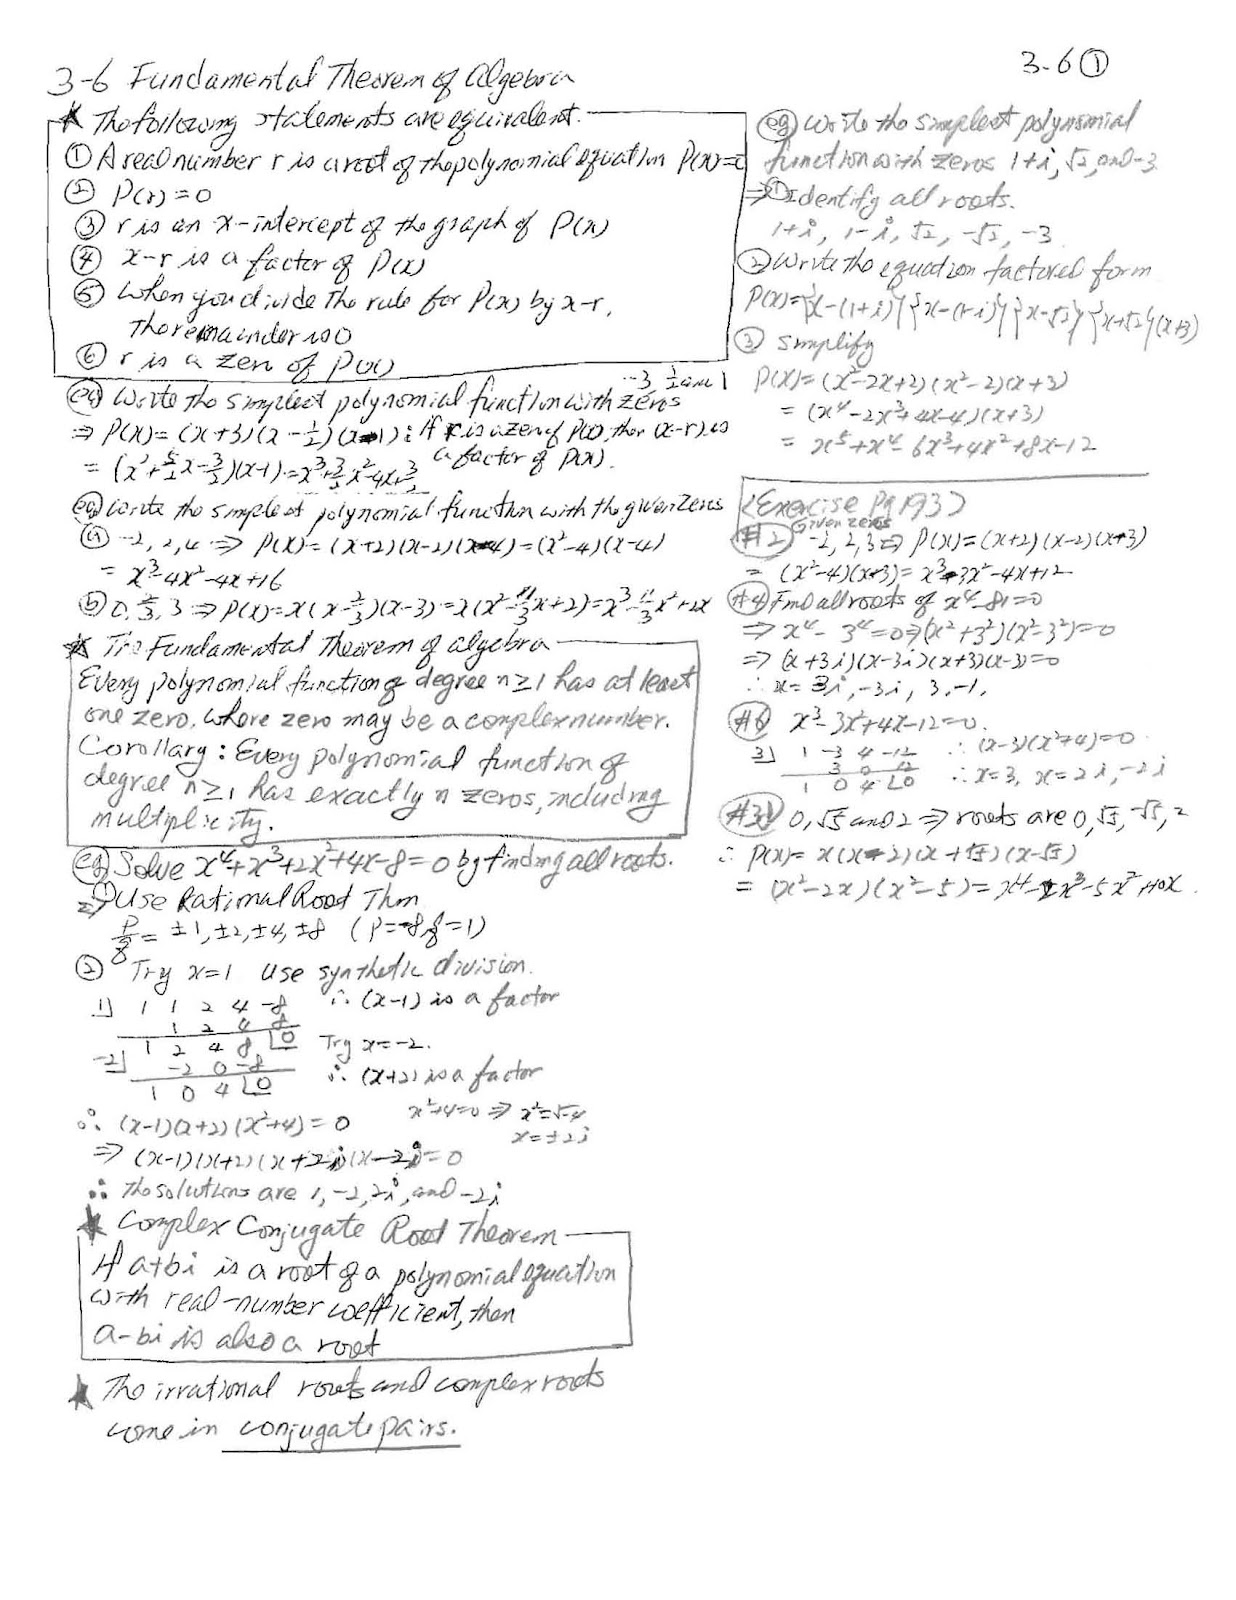 3-6 Fundamental Theorem of Algebra
3-6 ①
★ The following statements are equivalent.
① A real number r is a root of the polynomial equation P(x)=0
② P(r)=0
③ r is an x-intercept of the graph of P(x)
④ x-r is a factor of P(x)
⑤ When you divide the rule for P(x) by x-r,
The remainder is 0
⑥ r is a zero of P(x)
(eg) Write the simplest polynomial function with zeros -3, 1/2 and 1
⇒ P(x)=(x+3)(x-1/2)(x-1) ; If r is a zero of P(x), then (x-r) is
a factor of P(x).
= (x²+5/2x-3/2)(x-1)=x³+3/2x²-4x+3/2
(eg) Write the simplest polynomial function with the given zeros
ⓐ -2, 2, 4 ⇒ P(x)=(x+2)(x-2)(x-4)=(x²-4)(x-4)
= x³-4x²-4x+16
ⓑ 0, 2/3, 3 ⇒ P(x)=x(x-2/3)(x-3)=x(x²-11/3x+2)=x³-11/3x²+2x
★ The Fundamental Theorem of Algebra
Every polynomial function of degree n≥1 has at least
one zero, where zero may be a complex number.
Corollary : Every polynomial function of
degree n≥1 has exactly n zeros, including
multiplicity.
(eg) Solve x⁴+x³+2x²+4x-8=0 by finding all roots.
⇒ ① Use Rational Root Thm
p/q = ±1, ±2, ±4, ±8 (p=-8, q=1)
② Try x=1 use synthetic division.
1⌋ 1 1 2 4 -8 ∴ (x-1) is a factor
1 2 4 8
1 2 4 8 ⌊0 Try x=-2.
-2⌋ -2 0 -8 ∴ (x+2) is a factor
1 0 4 ⌊0
∴ (x-1)(x+2)(x²+4)=0 x²+4=0 ⇒ x²=√-4
x=±2i
⇒ (x-1)(x+2)(x+2i)(x-2i)=0
∴ The solutions are 1, -2, 2i, and -2i
★ Complex Conjugate Root Theorem
If a+bi is a root of a polynomial equation
with real-number coefficient, then
a-bi is also a root
★ The irrational roots and complex roots
come in conjugate pairs.
(eg) Write the simplest polynomial
function with zeros 1+i, √2, and -3
⇒ ① Identify all roots.
1+i, 1-i, √2, -√2, -3
② Write the equation factored form
P(x)={x-(1+i)}{x-(1-i)}{x-√2}{x+√2}(x+3)
③ simplify
P(x)=(x²-2x+2)(x²-2)(x+3)
= (x⁴-2x³+4x-4)(x+3)
= x⁵+x⁴-6x³+4x²+8x-12
<Exercise Pg 193>
#2 Given zeros -2, 2, 3 ⇒ P(x)=(x+2)(x-2)(x-3)
= (x²-4)(x-3)=x³-3x²-4x+12
#4 Find all roots of x⁴-81=0
⇒ x⁴-3⁴=0 ⇒ (x²+3²)(x²-3²)=0
⇒ (x+3i)(x-3i)(x+3)(x-3)=0
∴ x=3i, -3i, 3, -1,
#6 x³-3x²+4x-12=0.
3⌋ 1 -3 4 -12 ∴ (x-3)(x²+4)=0
3 0 12
1 0 4 ⌊0 ∴ x=3, x=2i, -2i
0, √5 and 2 ⇒ roots are 0, √5, -√5, 2
∴ P(x)=x(x-2)(x+√5)(x-√5)
= (x²-2x)(x²-5)=x⁴-2x³-5x²+10x.